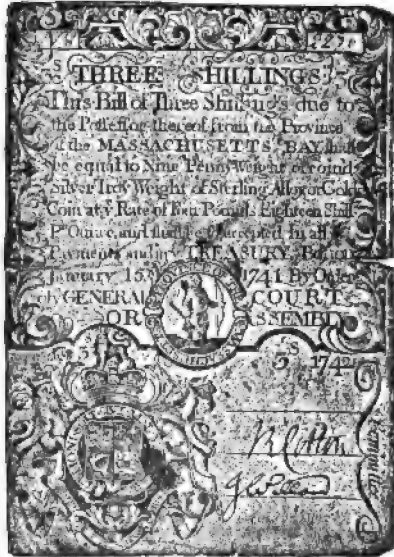 THREE SHILLINGS
This Bill of Three Shillings due to
the Possessor thereof from the Province
of the MASSACHUSETTS BAY shall
be equal to Nine Penny Weight of coined
Silver Troy Weight of Sterling Alloy or Gold
Coin at y Rate of Four Pounds Eighteen Shill
P Ounce, and shall be accepted in all
Payments and in y TREASURY. Boston
January 15 1741 By Order
of GENERAL COURT
OR ASSEMBLY
3S 1742
R Cotton
Committee